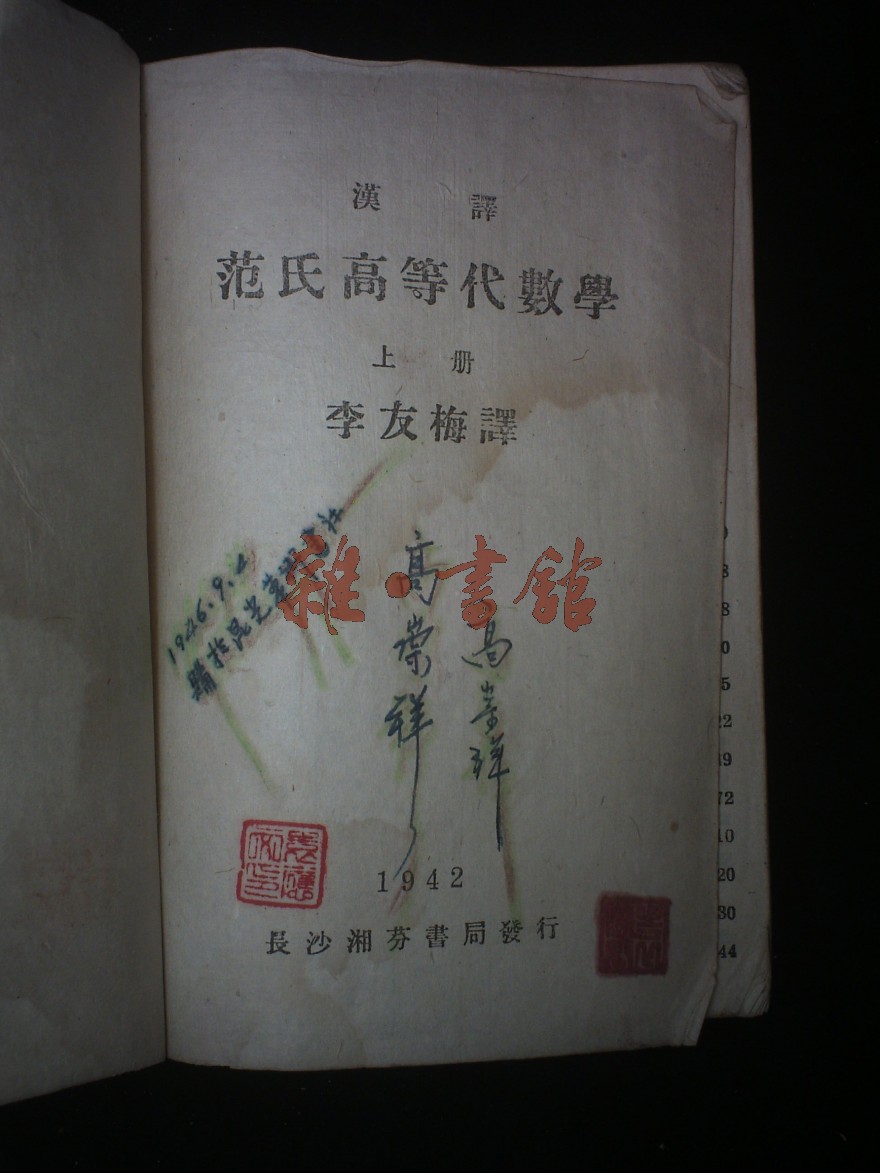 漢 譯
范氏高等代數學
上 册
李友梅譯
1946.9.4
購於昆
雜·書館
高崇祥
高崇祥
1942
長沙湘芬書局發行
8
8
0
5
22
39
72
10
20
30
44